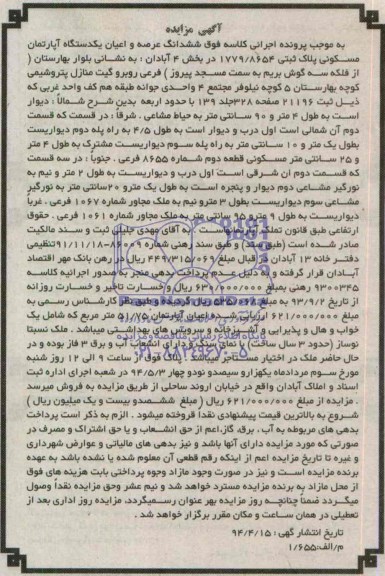 آگهی مزایده
به موجب پرونده اجرائی کلاسه فوق ششدانگ عرصه و اعیان یکدستگاه آپارتمان
مسکونی پلاک ثبتی ۱۷۷۹/۸۶۵۴ در بخش ۴ آبادان : به نشانی بلوار بهارستان (
از فلکه سه گوش بریم به سمت مسجد پیروز ) فرعی روبرو گیت منازل پتروشیمی
کوچه بهارستان ۵ کوچه نیلوفر مجتمع ۴ واحدی جوانه طبقه هم کف واحد غربی که
ذیل ثبت ۲۱۱۹۶ صفحه ۳۲۸جلد ۱۳۹ با حدود اربعه بدین شرح شمالاً : دیوار
است به طول ۴ متر و ۹۰ سانتی متر به حیاط مشاعی . شرقاً : در قسمت که قسمت
دوم آن شمالی است اول درب و دیوار است به طول ۴/۵ به راه پله دوم دیواریست
بطول یک متر و ۱۰ سانتی متر به راه پله سوم دیواریست مشترک به طول ۴ متر
و ۲۵ سانتی متر مسکونی قطعه دوم شماره ۸۶۵۵ فرعی . جنوباً : در سه قسمت
که قسمت دوم آن شرقی است اول درب و دیواریست به طول ۲ متر و نیم به
نورگیر مشاعی دوم دیوار و پنجره است به طول یک مترو ۲۰سانتی متر به نورگیر
مشاعی سوم دیواریست بطول ۳ مترو نیم به ملک مجاور شماره ۱۰۶۷ فرعی . غرباً
دیواریست به طول ۹ متر و ۹۵ سانتی متر به ملک مجاور شماره ۱۰۶۱ فرعی . حقوق
ارتفاقی طبق قانون تملک آپارتمانهاست . به آقای مهدی جلیلی ثبت و سند مالکیت
صادر شده است (طبق سند) و طبق سند رهنی شماره ۸۶۰۰۹-۹۱/۱۱/۱۸تنظیمی
دفتر خانه ۱۳ آبادان در قبال مبلغ ۴۴۹/۳۱۵/۰۶۹ ریال در رهن بانک مهر اقتصاد
آبادان قرار گرفته و به دلیل عدم پرداخت بدهی منجر به صدور اجرائیه کلاسه
۹۳۰۰۳۴۵ رهنی بمبلغ ریال و خسارت تاخیر و خسارت روزانه
از تاریخ ۹۳/۹/۲ به مبلغ ریال گردیده و طبق نظر کارشناس رسمی به
مبلغ ۶۲۱/۰۰۰/۰۰۰ ریال ارزیابی شده اعیان آپارتمان ۵۱/۷۵ متر مربع که شامل یک
خواب و هال و پذیرایی و آشپزخانه و سرویس های بهداشتی میباشد . ملک نسبتا
نوساز (حدود ۳ سال ساخت) با نمای سنگ و دارای انشعاب آب و برق ۳ فاز بوده و در
حال حاضر ملک در اختیار مستاجر میباشد . پلاک فوق از ساعت ۹ الی ۱۲ روز شنبه
مورخ سوم مردادماه یکهزارو سیصدو نودو چهار ۹۴/۵/۳ در شعبه اجرای اداره ثبت
اسناد و املاک آبادان واقع در خیابان اروند ساحلی از طریق مزایده به فروش میرسد
. مزایده از مبلغ ۶۲۱/۰۰۰/۰۰۰ ریال ( مبلغ ششصدو بیست و یک میلیون ریال )
شروع به بالاترین قیمت پیشنهادی نقدا فروخته میشود . الزم به ذکر است پرداخت
بدهی های مربوطه به آب ، برق، گاز،اعم از حق انشعاب و یا حق اشتراک و مصرف در
صورتی که مورد مزایده دارای آنها باشد و نیز بدهی های مالیاتی و عوارض شهرداری
و غیره تا تاریخ مزایده اعم از اینکه رقم قطعی آن معلوم شده یا نشده باشد به عهده
برنده مزایده است و نیز در صورت وجود مازاد وجوه پرداختی بابت هزینه های فوق
از محل مازاد به برنده مزایده مسترد خواهد شد و نیم عشر وحق مزایده نقداً وصول
میگردد ضمناً چنانچه روز مزایده بهر عنوان رسمیگردد، مزایده روز اداری بعد از
تعطیلی در همان ساعت و مکان مقرر برگزار خواهد شد .
تاریخ انتشار آگهی : ۹۴/۴/۱۵
م/الف:۱/۶۵۵